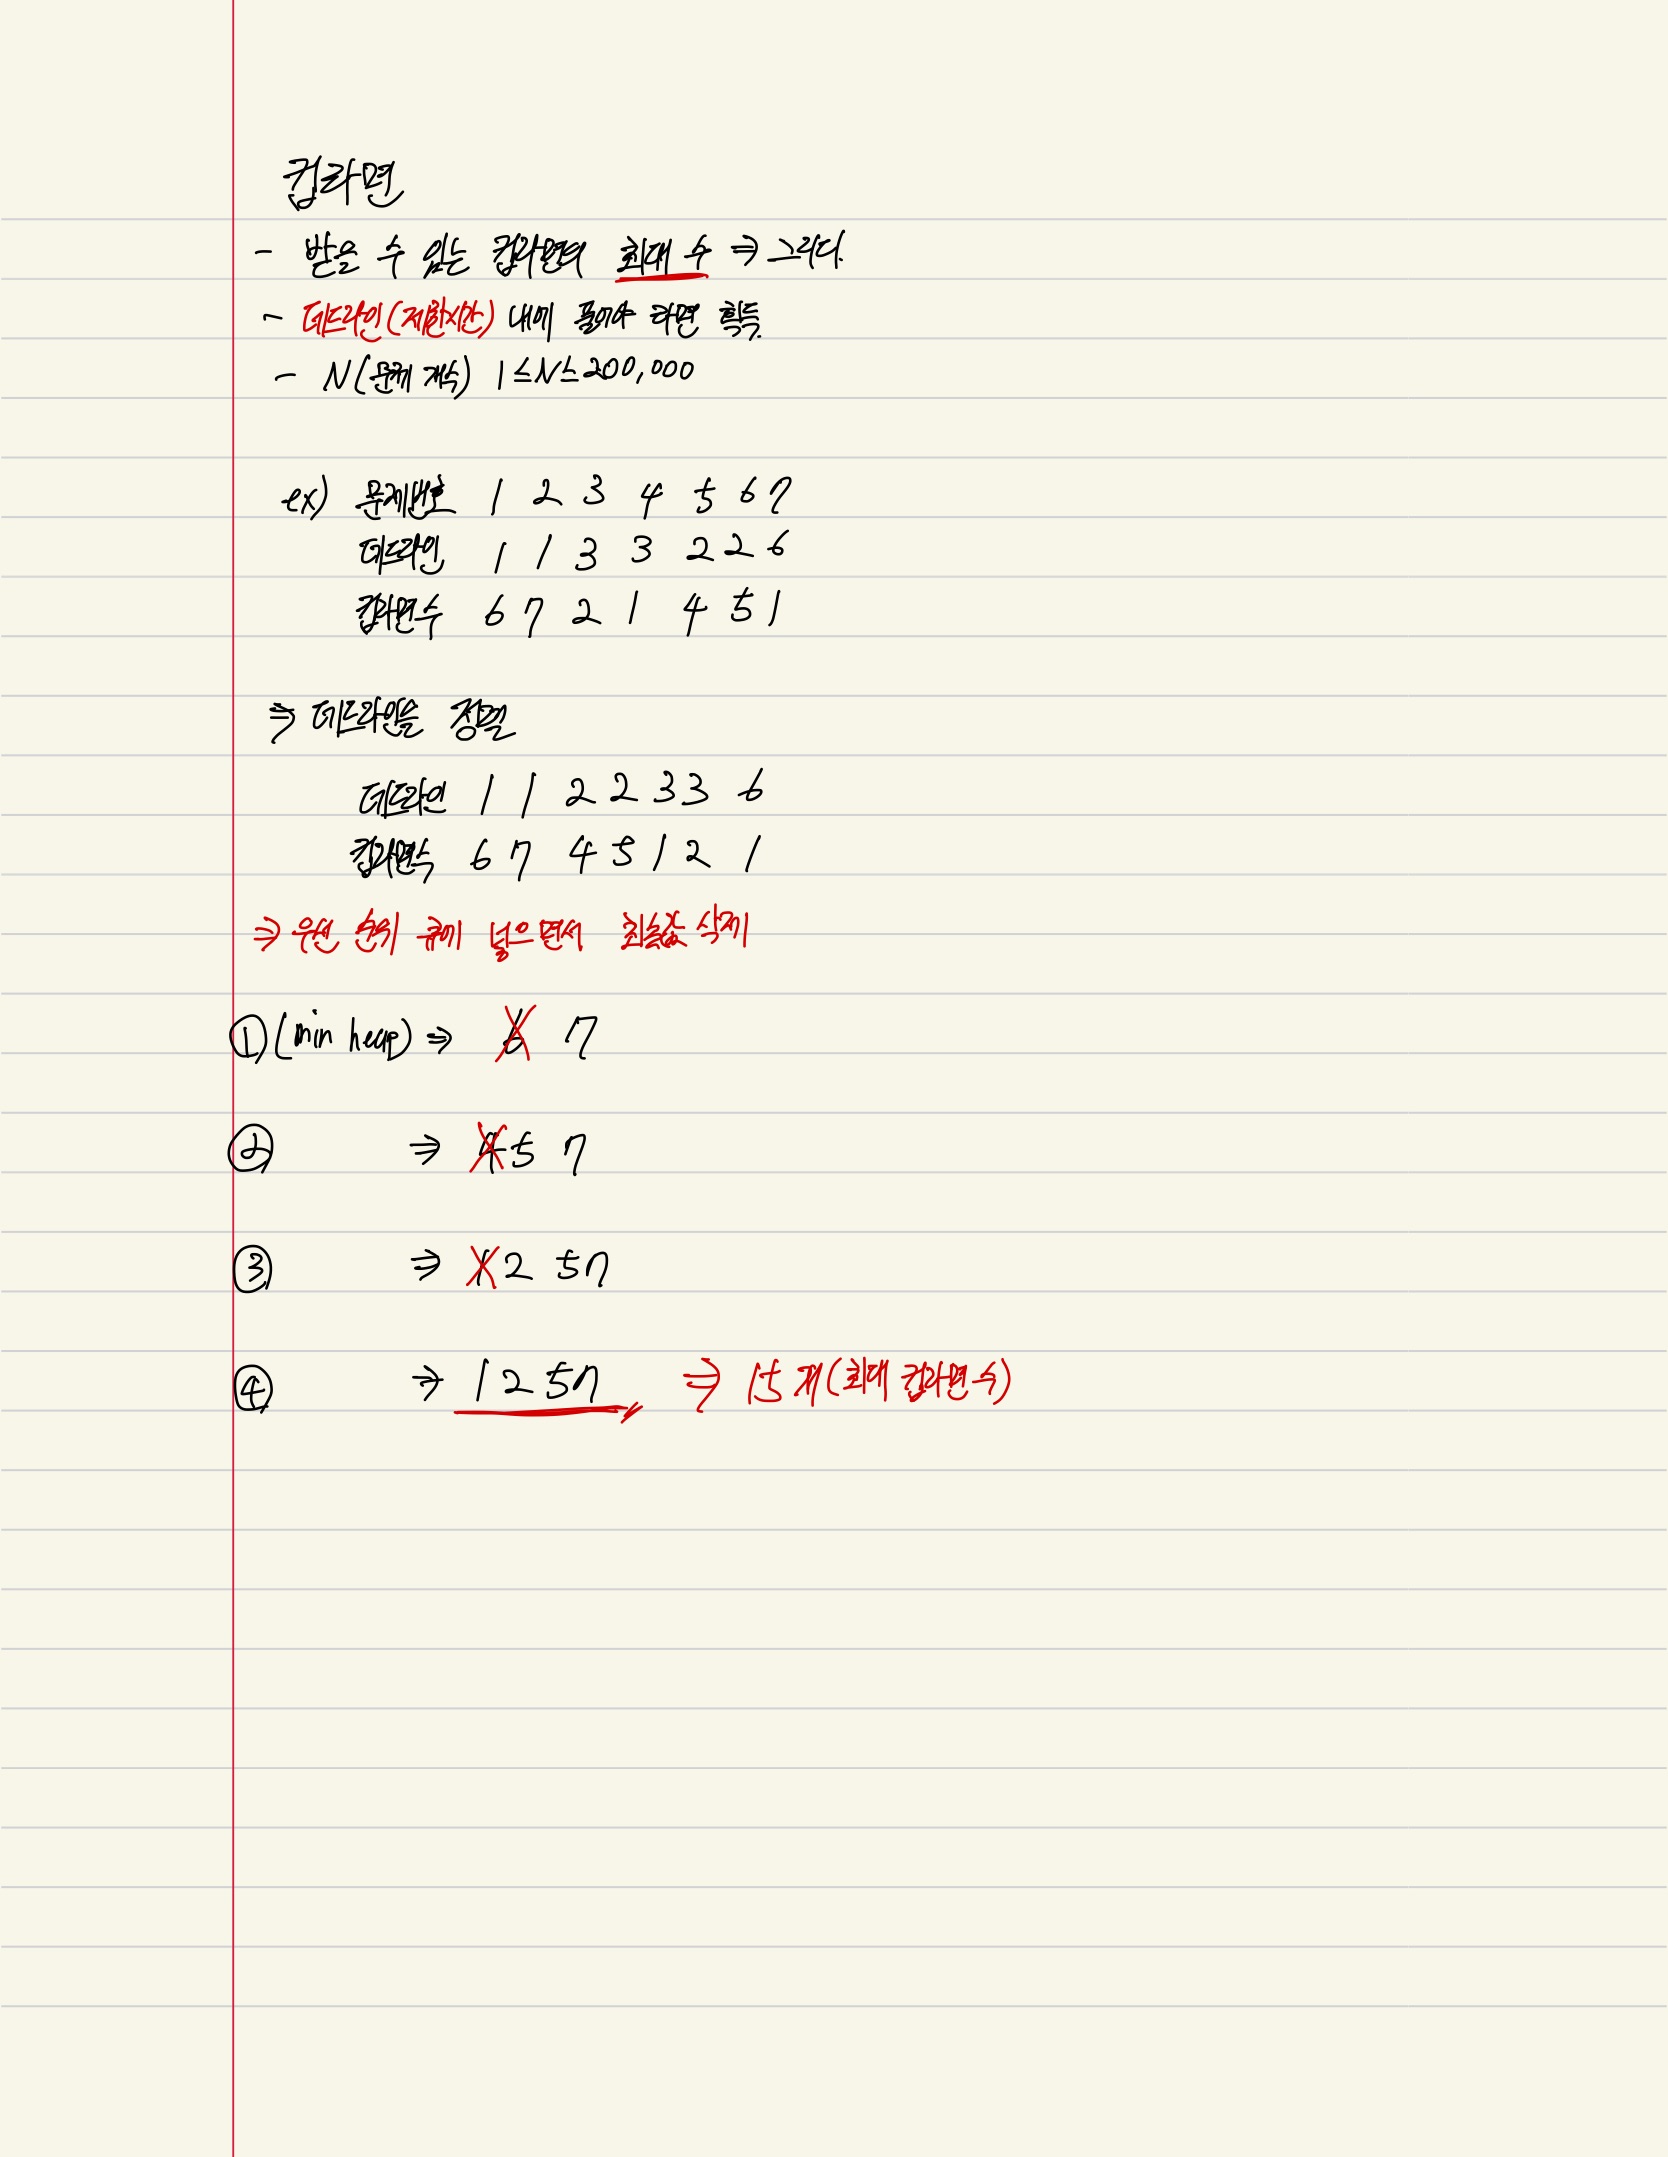 컵라면
- 받을 수 있는 컵라면의 최대 수 ⇒ 그리디.
- 데드라인(제한시간) 내에 풀어야 라면 획득.
- N(문제 개수) 1≤N≤200,000
ex) 문제번호 1 2 3 4 5 6 7
데드라인 1 1 3 3 2 2 6
컵라면수 6 7 2 1 4 5 1
⇒ 데드라인을 정렬
데드라인 1 1 2 2 3 3 6
컵라면수 6 7 4 5 1 2 1
⇒ 우선 순위 큐에 넣으면서 최솟값 삭제
① (min heap) ⇒ 6 7
② ⇒ 4 5 7
③ ⇒ 1 2 5 7
④ ⇒ 1 2 5 7 ⇒ 15개(최대 컵라면 수)